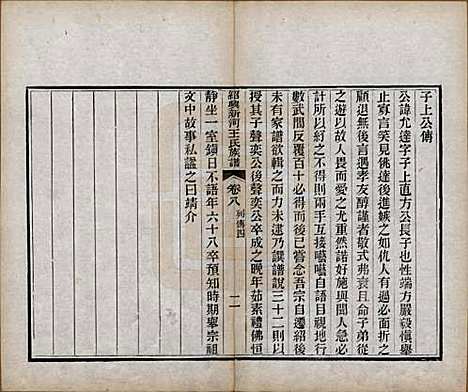 子上公傳
公諱尤達字子上直方公長子也性端方嚴毅慎舉
止寡言笑見佛達後進嫉之如仇人有過必面折之
顧退無後言遇孝友醇謹者敬式弗衰且命子弟從
之遊以故人畏而愛之尤重然諾好施與聞人急必
計所以紓之不得則兩手互接囁囁自語目視地行
數武間反覆百十必得而後已嘗念吾宗自遷紹後
未有家譜欲輯之而力未逮乃譔譜說三十二則以
授其子聲奕公後聲奕公卒成之晚年茹素禮佛恒
紹興新河王氏族譜 卷八 列傳四 二
靜坐一室鎮日不語年六十八卒預知時期舉宗祖
文中故事私諡之曰靖介